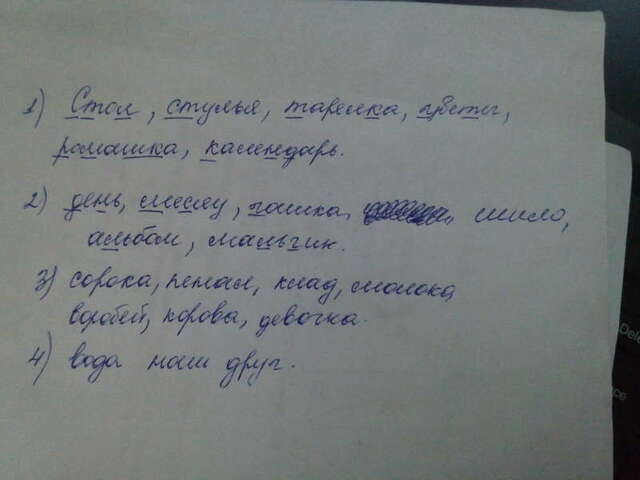 1) Стол, стулья, тарелка, цветы,
ромашка, календарь.
2) день, чашка, шило,
альбом, мальчик.
3) сорока, пенал, клад, молоко
воробей, корова, девочка.
4) вода наш друг.